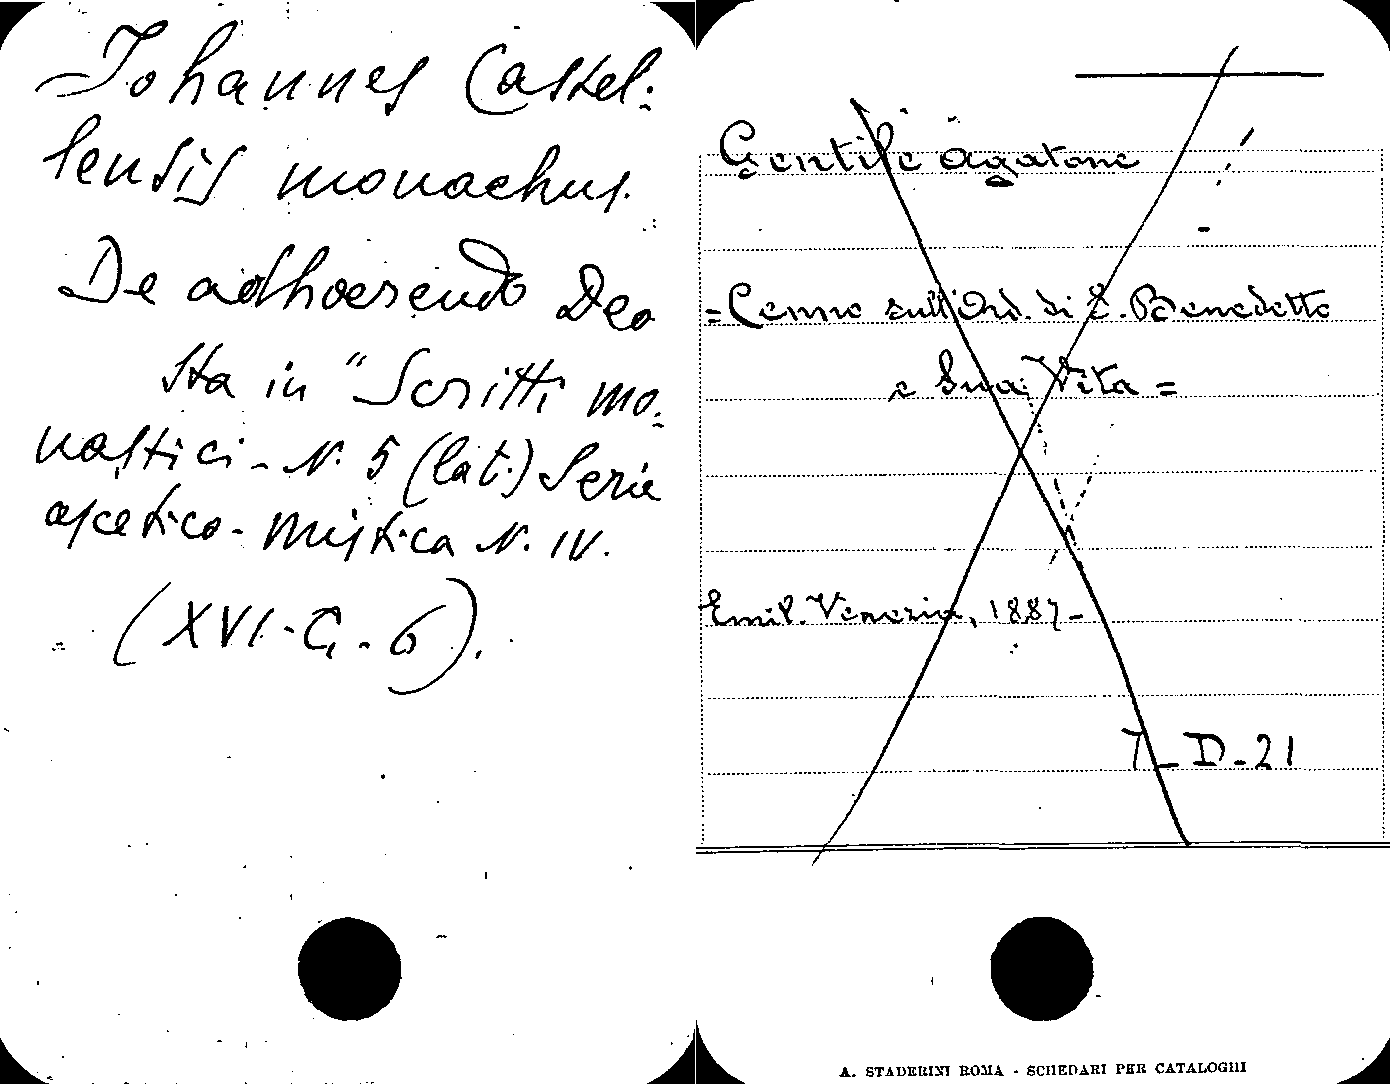 Johannes Castel:
lensis monachus.
De adhaerendo Deo
Sta in "Scritti mo:
nastici - N. 5 (lat.) Serie
ascetico-mistica N. IV.
(XVI-C-6).
Gentile Agatone
= Cenno sull'Ord. di S. Benedetto
e Sua Vita =
Emil. Venezia, 1887-
7-D-21
A. STADERINI ROMA - SCHEDARI PER CATALOGHI